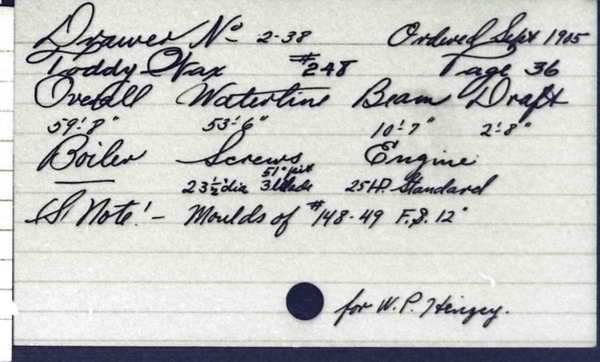 Drawer No 2-38 Ordered Sept 1905
Toddy Wax #248 Page 36
Overall Waterline Beam Draft
59'-8" 53'-6" 10'-7" 2'-8"
Boiler Screws Engine
51" pit
23½" dia 3 blade 25 H.P. Standard
Note! - Moulds of #148-49 F.S. 12"
for W.P.